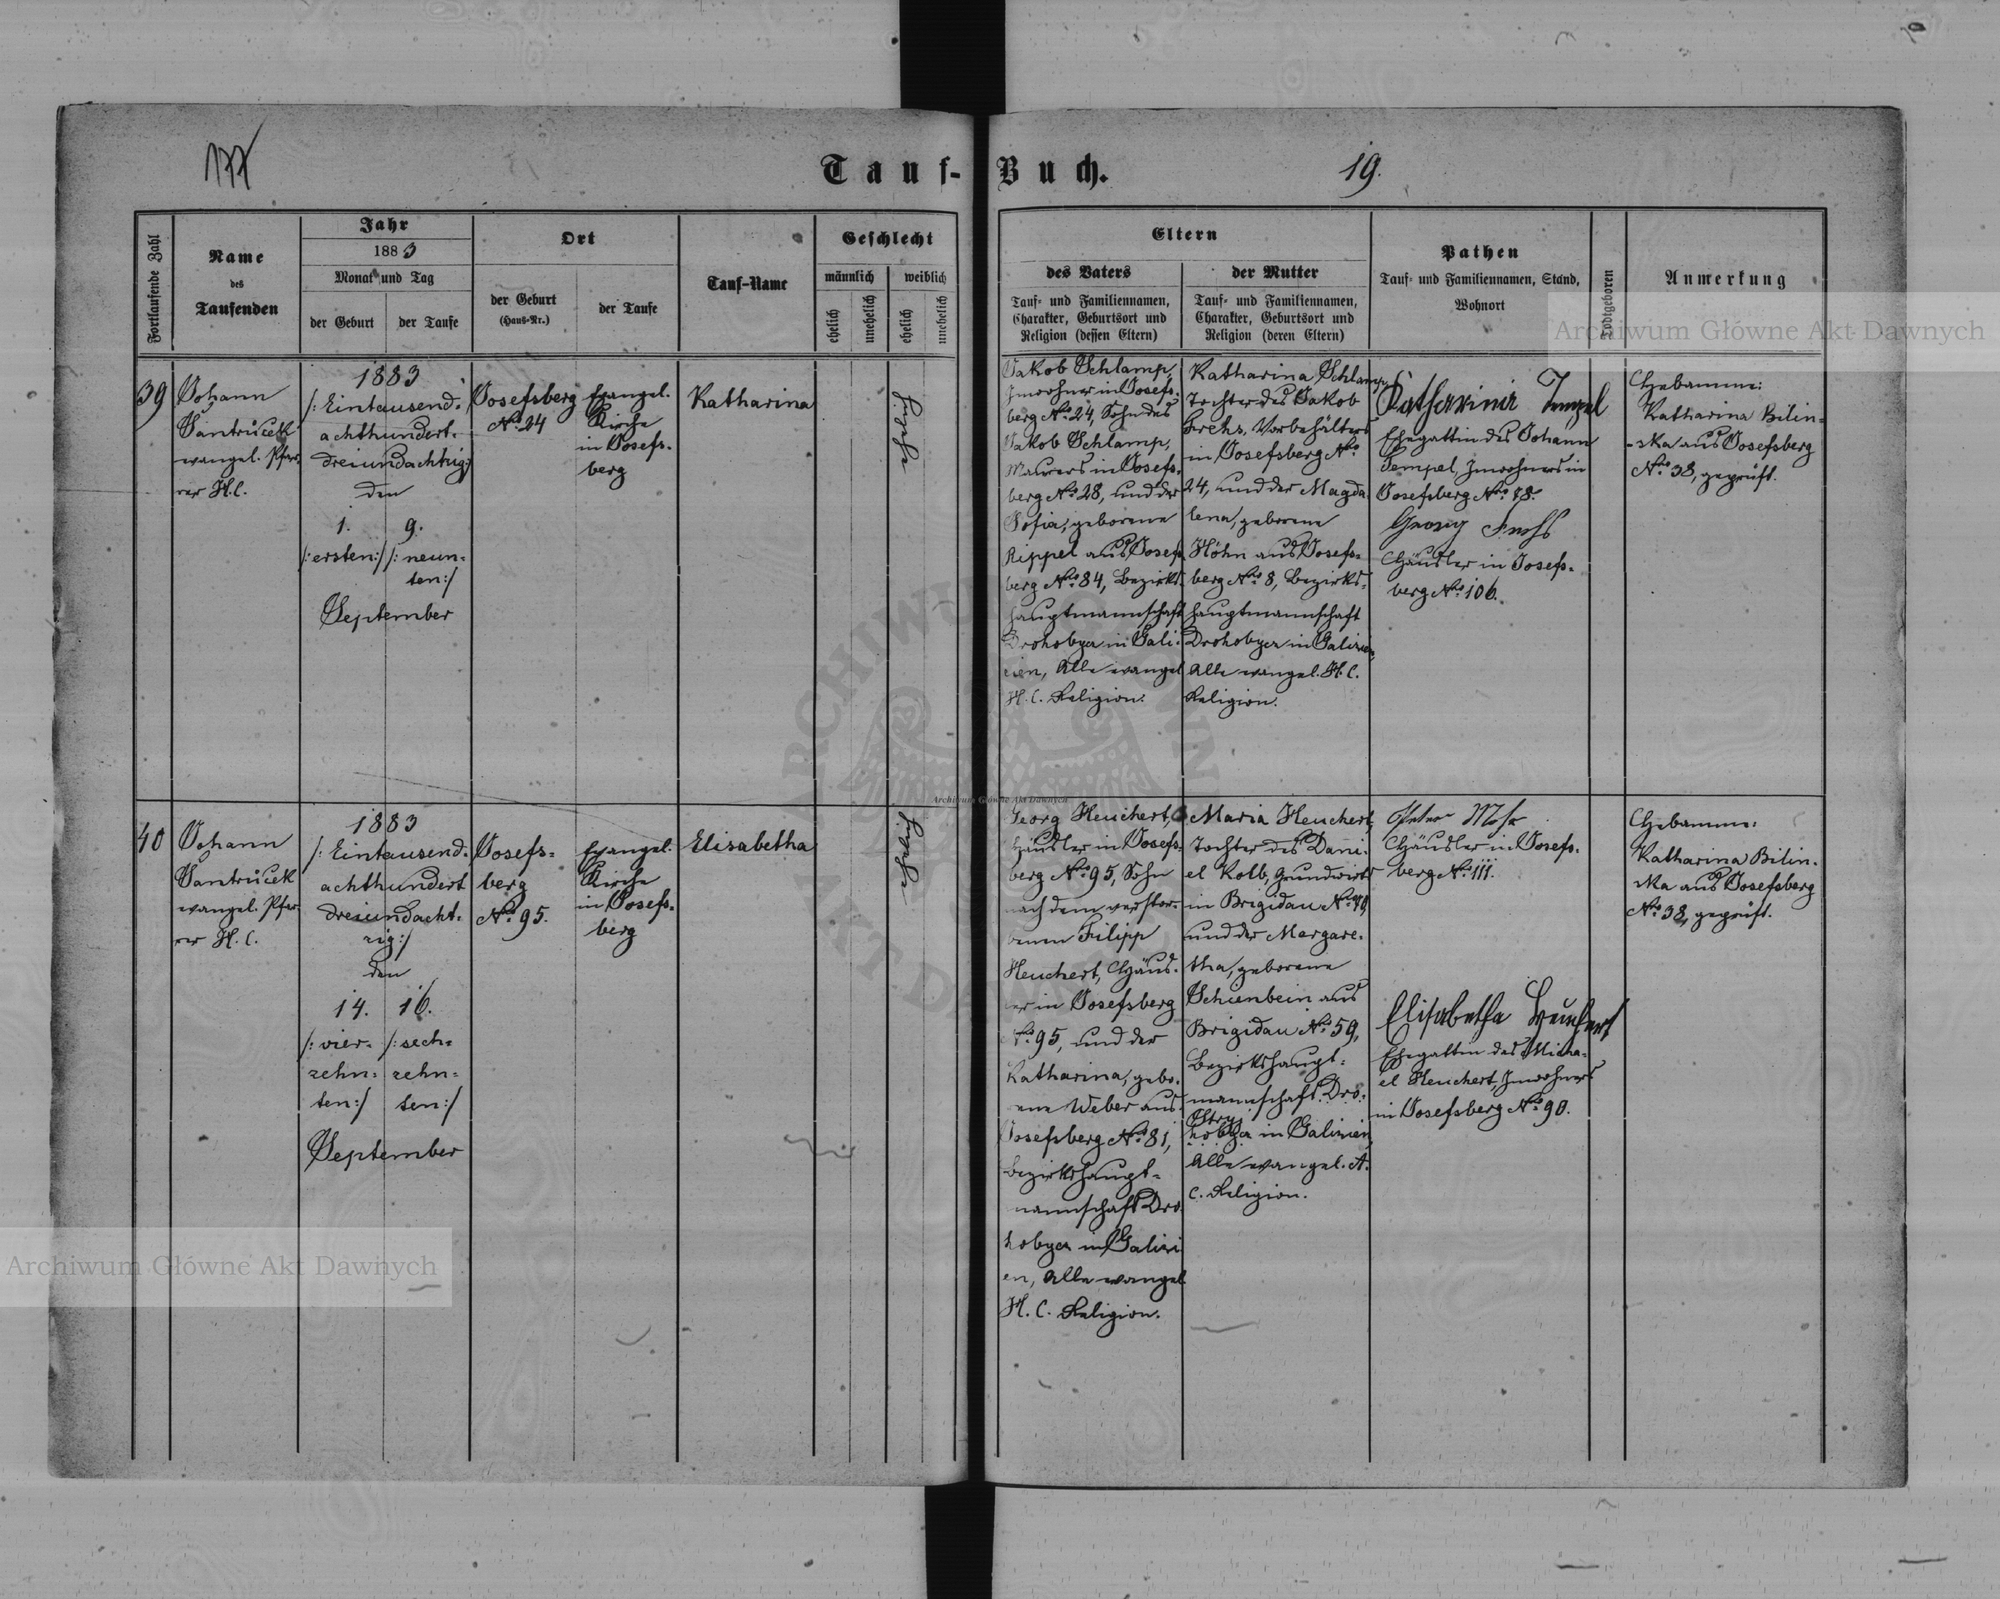 177
Tauf-Buch.
19.
Fortlaufende Zahl
Name
des
Taufenden
Jahr
1883
Monat und Tag
der Geburt
der Taufe
Ort
der Geburt
(Haus-Nr.)
der Taufe
Tauf-Name
Geschlecht
männlich
weiblich
ehelich
unehelich
ehelich
unehelich
Eltern
des Vaters
Tauf- und Familiennamen,
Charakter, Geburtsort und
Religion (dessen Eltern)
der Mutter
Tauf- und Familiennamen,
Charakter, Geburtsort und
Religion (deren Eltern)
Pathen
Tauf- und Familiennamen, Stand,
Wohnort
Todtgeboren
Anmerkung
39
Johann
Santrůcek
evangel. Pfar-
rer H.C.
1883
/: Eintausend-
achthundert-
dreiundachtzig:/
den
1. 9.
/: ersten:/ /: neun-
ten:/
September
Josefsberg
No 24
Evangel.
Kirche
in Josefs-
berg
Katharina
ehelich
Jakob Schlamp,
Inwohner in Josefs-
berg No 24, Sohn des
Jakob Schlamp,
Maurers in Josefs-
berg No 28, und der
Sofia, geborene
Rippel aus Josefs-
berg No 84, Bezirks-
hauptmannschaft
Drohobycz in Gali-
zien, Alle evangel.
H.C. Religion.
Katharina Schlamp,
Tochter des Jakob
Vorbehälters
in Josefsberg No
24, und der Magda-
lena, geborene
Höhn aus Josefs-
berg No 8, Bezirks-
hauptmannschaft
Drohobycz in Galizien,
Alle evangel. H.C.
Religion.
Katharina Tempel
Ehegattin des Johann
Tempel, Inwohners in
Josefsberg No 78.
Georg Fuchs
Häusler in Josefs-
berg No 106.
Hebamme:
Katharina Bilin-
-ska aus Josefsberg
No 38, geprüft.
40
Johann
Santrůcek
evangel. Pfar-
rer H.C.
1883
/: Eintausend-
achthundert
dreiundacht-
zig:/
den
14. 16.
/: vier- /: sech-
zehn- zehn-
ten:/ ten:/
September
Josefs-
berg
No 95.
Evangel.
Kirche
in Josefs-
berg
Elisabetha
ehelich
Georg Heuchert,
Häusler in Josefs-
berg No 95, Sohn
nach dem verstor-
benen Filipp
Heuchert, Häus-
ler in Josefsberg
No 95, und der
Katharina, gebo-
rene Weber aus
Josefsberg No 81,
Bezirkshaupt-
mannschaft Dro-
hobycz in Galizi
en, Alle evangel.
H.C. Religion.
Maria Heuchert,
Tochter des Dani-
el Kolb, Grundwirts
in Brigidau No 70,
und der Margare-
tha, geborene
Schienbein aus
Brigidau No 59,
Bezirkshaupt-
mannschaft Dro-
Stry
hobycz in Galizien,
Alle evangel. A.
C. Religion.
Peter Mohr
Häusler in Josefs-
berg No 111.
Elisabetha Heuchert
Ehegattin des Micha-
el Heuchert, Inwohners
in Josefsberg No 90.
Hebamme:
Katharina Bilin-
ska aus Josefsberg
No 38, geprüft.
Archiwum Główne Akt Dawnych
Archiwum Główne Akt Dawnych
Archiwum Główne Akt Dawnych